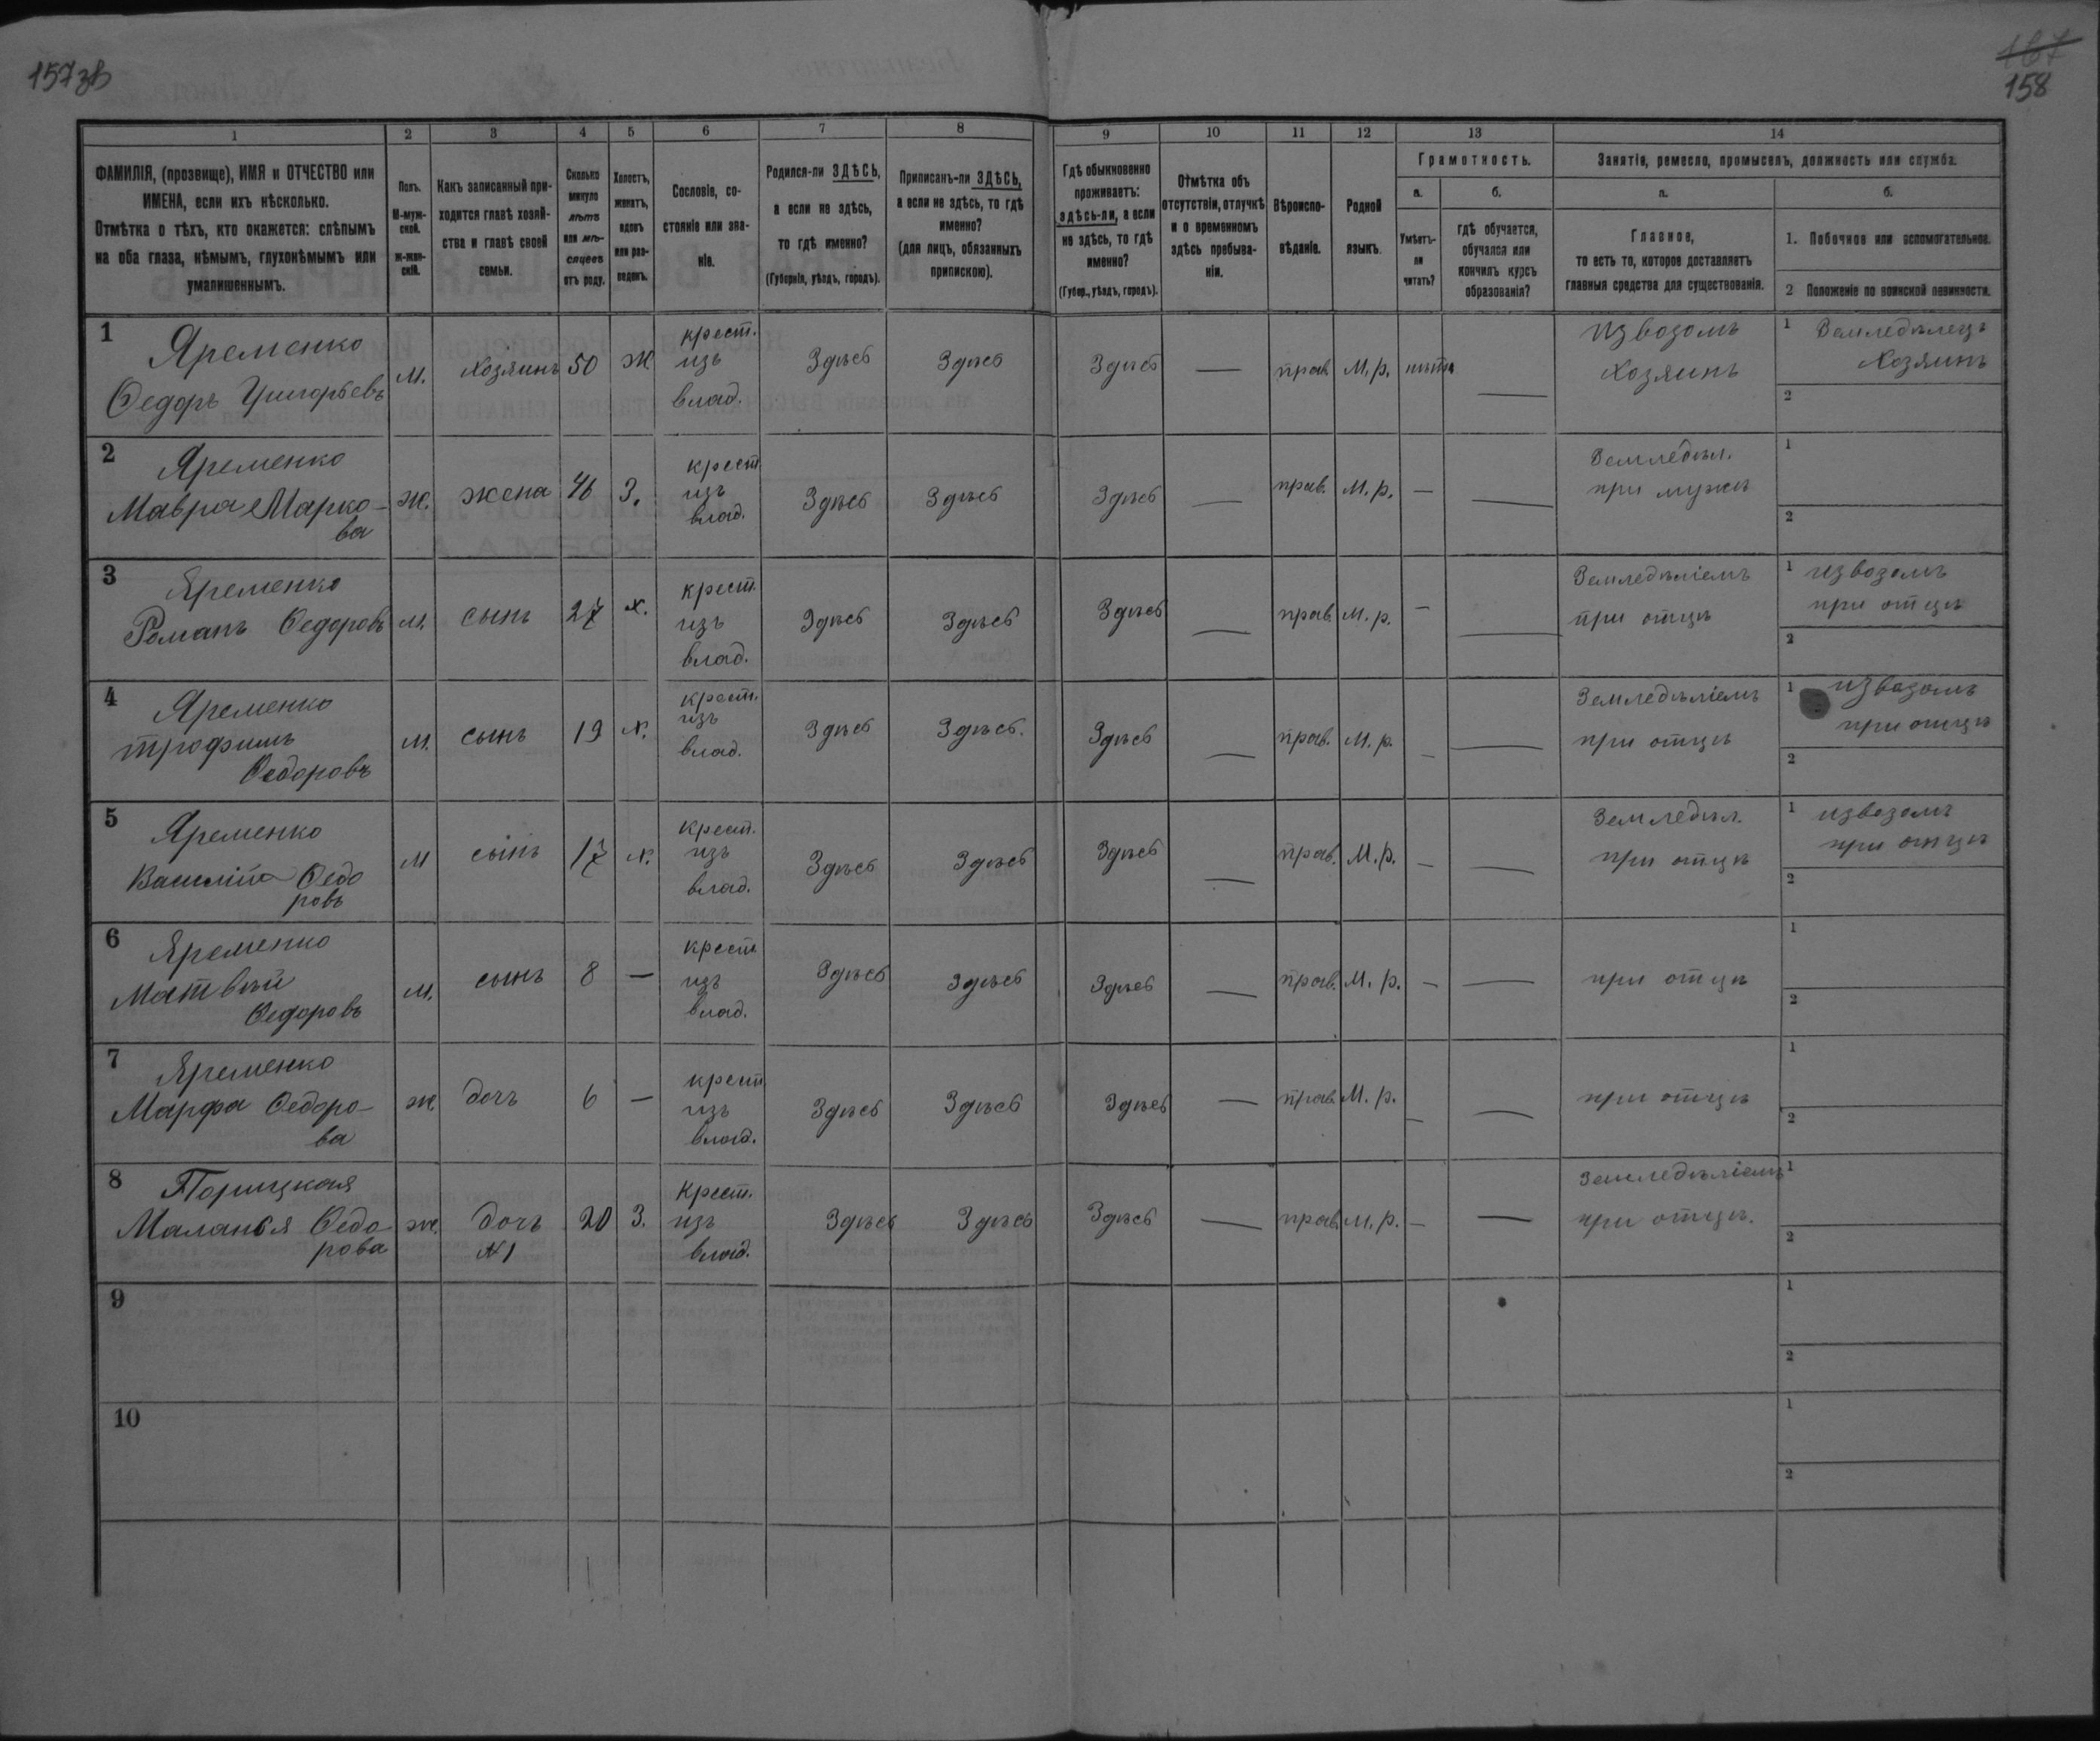 157зв
167
158
1 2 3 4 5 6 7 8 9 10 11 12 13 14
ФАМИЛІЯ, (прозвище), ИМЯ и ОТЧЕСТВО или
ИМЕНА, если ихъ нѣсколько.
Отмѣтка о тѣхъ, кто окажется: слѣпымъ
на оба глаза, нѣмымъ, глухонѣмымъ или
умалишеннымъ.
Полъ.
М-муж-
ской.
ж-жен-
скій.
Какъ записанный при-
ходится главѣ хозяй-
ства и главѣ своей
семьи.
Сколько
минуло
лѣтъ
или мѣ-
сяцевъ
отъ роду.
Холостъ,
женатъ,
вдовъ
или раз-
веденъ.
Сословіе, со-
стояніе или зва-
ніе.
Родился-ли ЗДѢСЬ,
а если не здѣсь,
то гдѣ именно?
(Губернія, уѣздъ, городъ).
Приписанъ-ли ЗДѢСЬ,
а если не здѣсь, то гдѣ
именно?
(для лицъ, обязанныхъ
припискою).
Гдѣ обыкновенно
проживаетъ:
здѣсь-ли, а если
не здѣсь, то гдѣ
именно?
(Губер., уѣздъ, городъ).
Отмѣтка объ
отсутствіи, отлучкѣ
и о временномъ
здѣсь пребыва-
ніи.
Вѣроиспо-
вѣданіе.
Родной
языкъ.
Грамотность.
а.
Умѣетъ-
ли
читать?
б.
гдѣ обучается,
обучался или
кончилъ курсъ
образованія?
Занятіе, ремесло, промыселъ, должность или служба.
а.
Главное,
то есть то, которое доставляетъ
главныя средства для существованія.
б.
1. Побочное или вспомогательное.
2 Положеніе по воинской повинности.
1
Яременко
Федоръ Григорьевъ
м.
Хозяинъ
50
Ж
крест.
изъ
влад.
Здѣсь
Здѣсь
Здѣсь
—
прав
М.р.
нѣтъ
—
Извозомъ
Хозяинъ
1 Земледѣлецъ
Хозяинъ
2
2
Яременко
Мавра Марко-
ва
ж.
жена
46
З.
крест
изъ
влад.
Здѣсь
Здѣсь
Здѣсь
—
прав.
М.р.
—
—
Земледѣл.
при мужѣ
1
2
3
Яременко
Романъ Федоровъ
м.
сынъ
27
х.
крест.
изъ
влад.
Здѣсь
Здѣсь
Здѣсь
—
прав.
М.р.
—
—
Земледѣліемъ
при отцѣ
1 извозомъ
при отцѣ
2
4
Яременко
Трофимъ
Федоровъ
м.
сынъ
19
х.
крест.
изъ
влад.
Здѣсь
Здѣсь.
Здѣсь
—
прав.
М.р.
—
—
Земледѣліемъ
при отцѣ
1 извозомъ
при отцѣ
2
5
Яременко
Василій Федо
ровъ
м
сынъ
17
х.
крест.
изъ
влад.
Здѣсь
Здѣсь
Здѣсь
—
прав.
М.р.
—
—
Земледѣл.
при отцѣ
1 извозомъ
при отцѣ
2
6
Яременко
Матвѣй
Федоровъ
м.
сынъ
8
—
крест
изъ
влад.
Здѣсь
Здѣсь
Здѣсь
—
прав.
М.р.
—
—
при отцѣ
1
2
7
Яременко
Марфа Федоро-
ва
ж
дочь
6
—
крест
изъ
влад.
Здѣсь
Здѣсь
Здѣсь
—
прав.
М.р.
—
—
при отцѣ
1
2
8
Порицкая
Маланья Федо
рова
ж.
дочь
№1
20
З.
Крест.
изъ
влад.
Здѣсь
Здѣсь
Здѣсь
—
прав.
М.р.
—
—
Земледѣліемъ
при отцѣ.
1
2
9
1
2
10
1
2